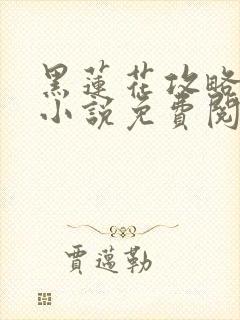 黑蓮花攻略
小說免費閱
賈邁勒